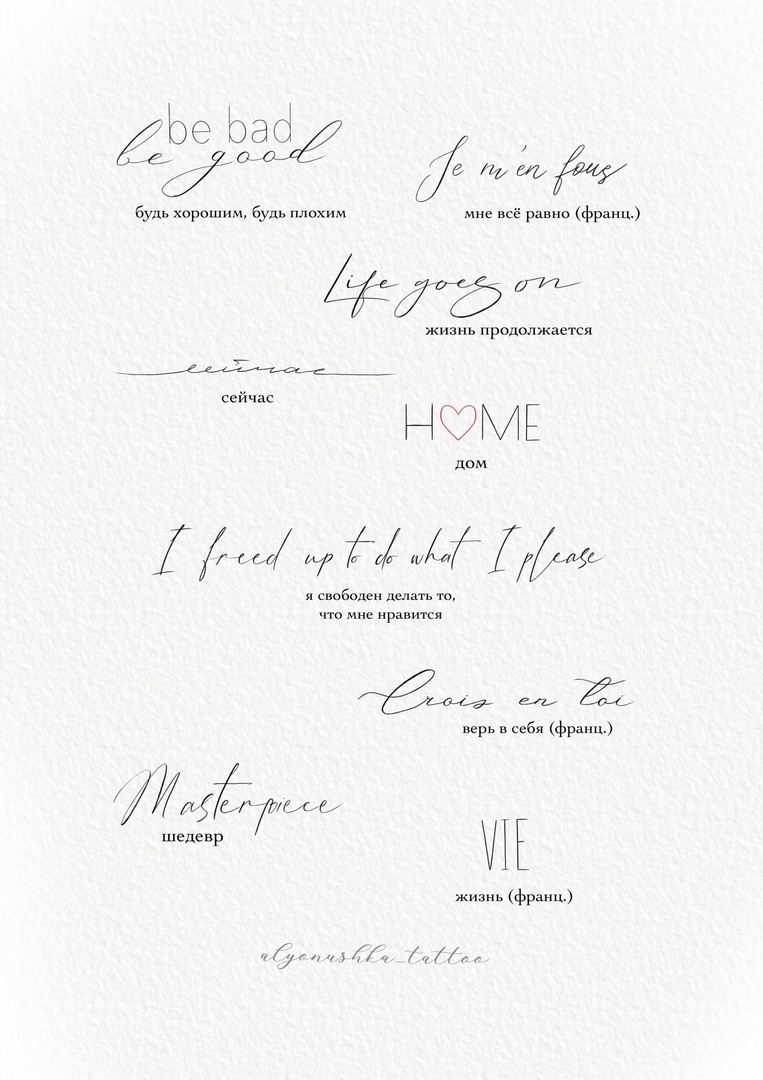 be bad
be good
будь хорошим, будь плохим
Je m'en fous
мне всё равно (франц.)
Life goes on
жизнь продолжается
сейчас
сейчас
H♡ME
дом
I freed up to do what I please
я свободен делать то,
что мне нравится
Crois en toi
верь в себя (франц.)
Masterpiece
шедевр
VIE
жизнь (франц.)
alyonushka_tattoo